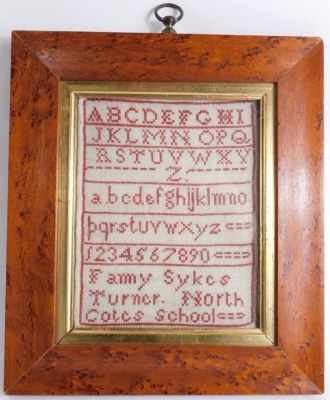 ABCDEFGHI
JKLMNOPQ
RSTUVWXY
Z.
abcdefghijklmno
pqrstuvwxyz
1234567890
Fanny Sykes
Turner. North
Cotes School